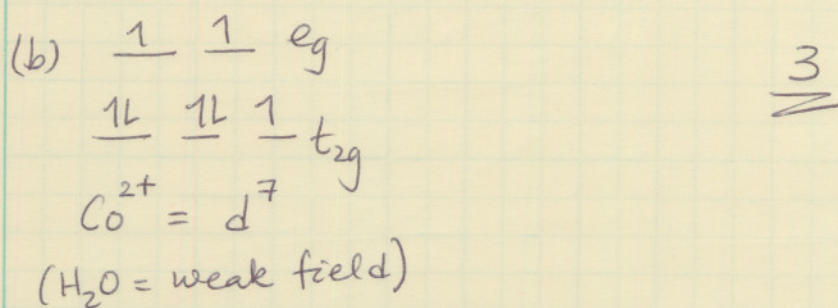 (b) 1 1 eg
1L 1L 1 t₂g
Co²⁺ = d⁷
(H₂O = weak field)
3